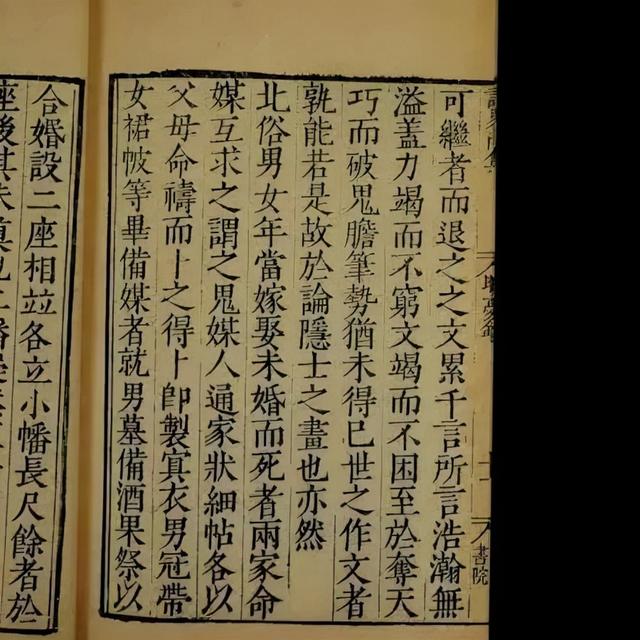 可繼者而退之之文累千言所言浩瀚無
溢盖力竭而不窮文竭而不困至於奪天
巧而破鬼膽筆勢猶未得已世之作文者
孰能若是故於論隱士之畫也亦然
北俗男女年當嫁娶未婚而死者兩家命
媒互求之謂之鬼媒人通家狀細帖各以
父母命禱而卜之得卜即製冥衣男冠帶
女裙帔等畢備媒者就男墓備酒果祭以
合婚設二座相並各立小幡長尺餘者於
書院